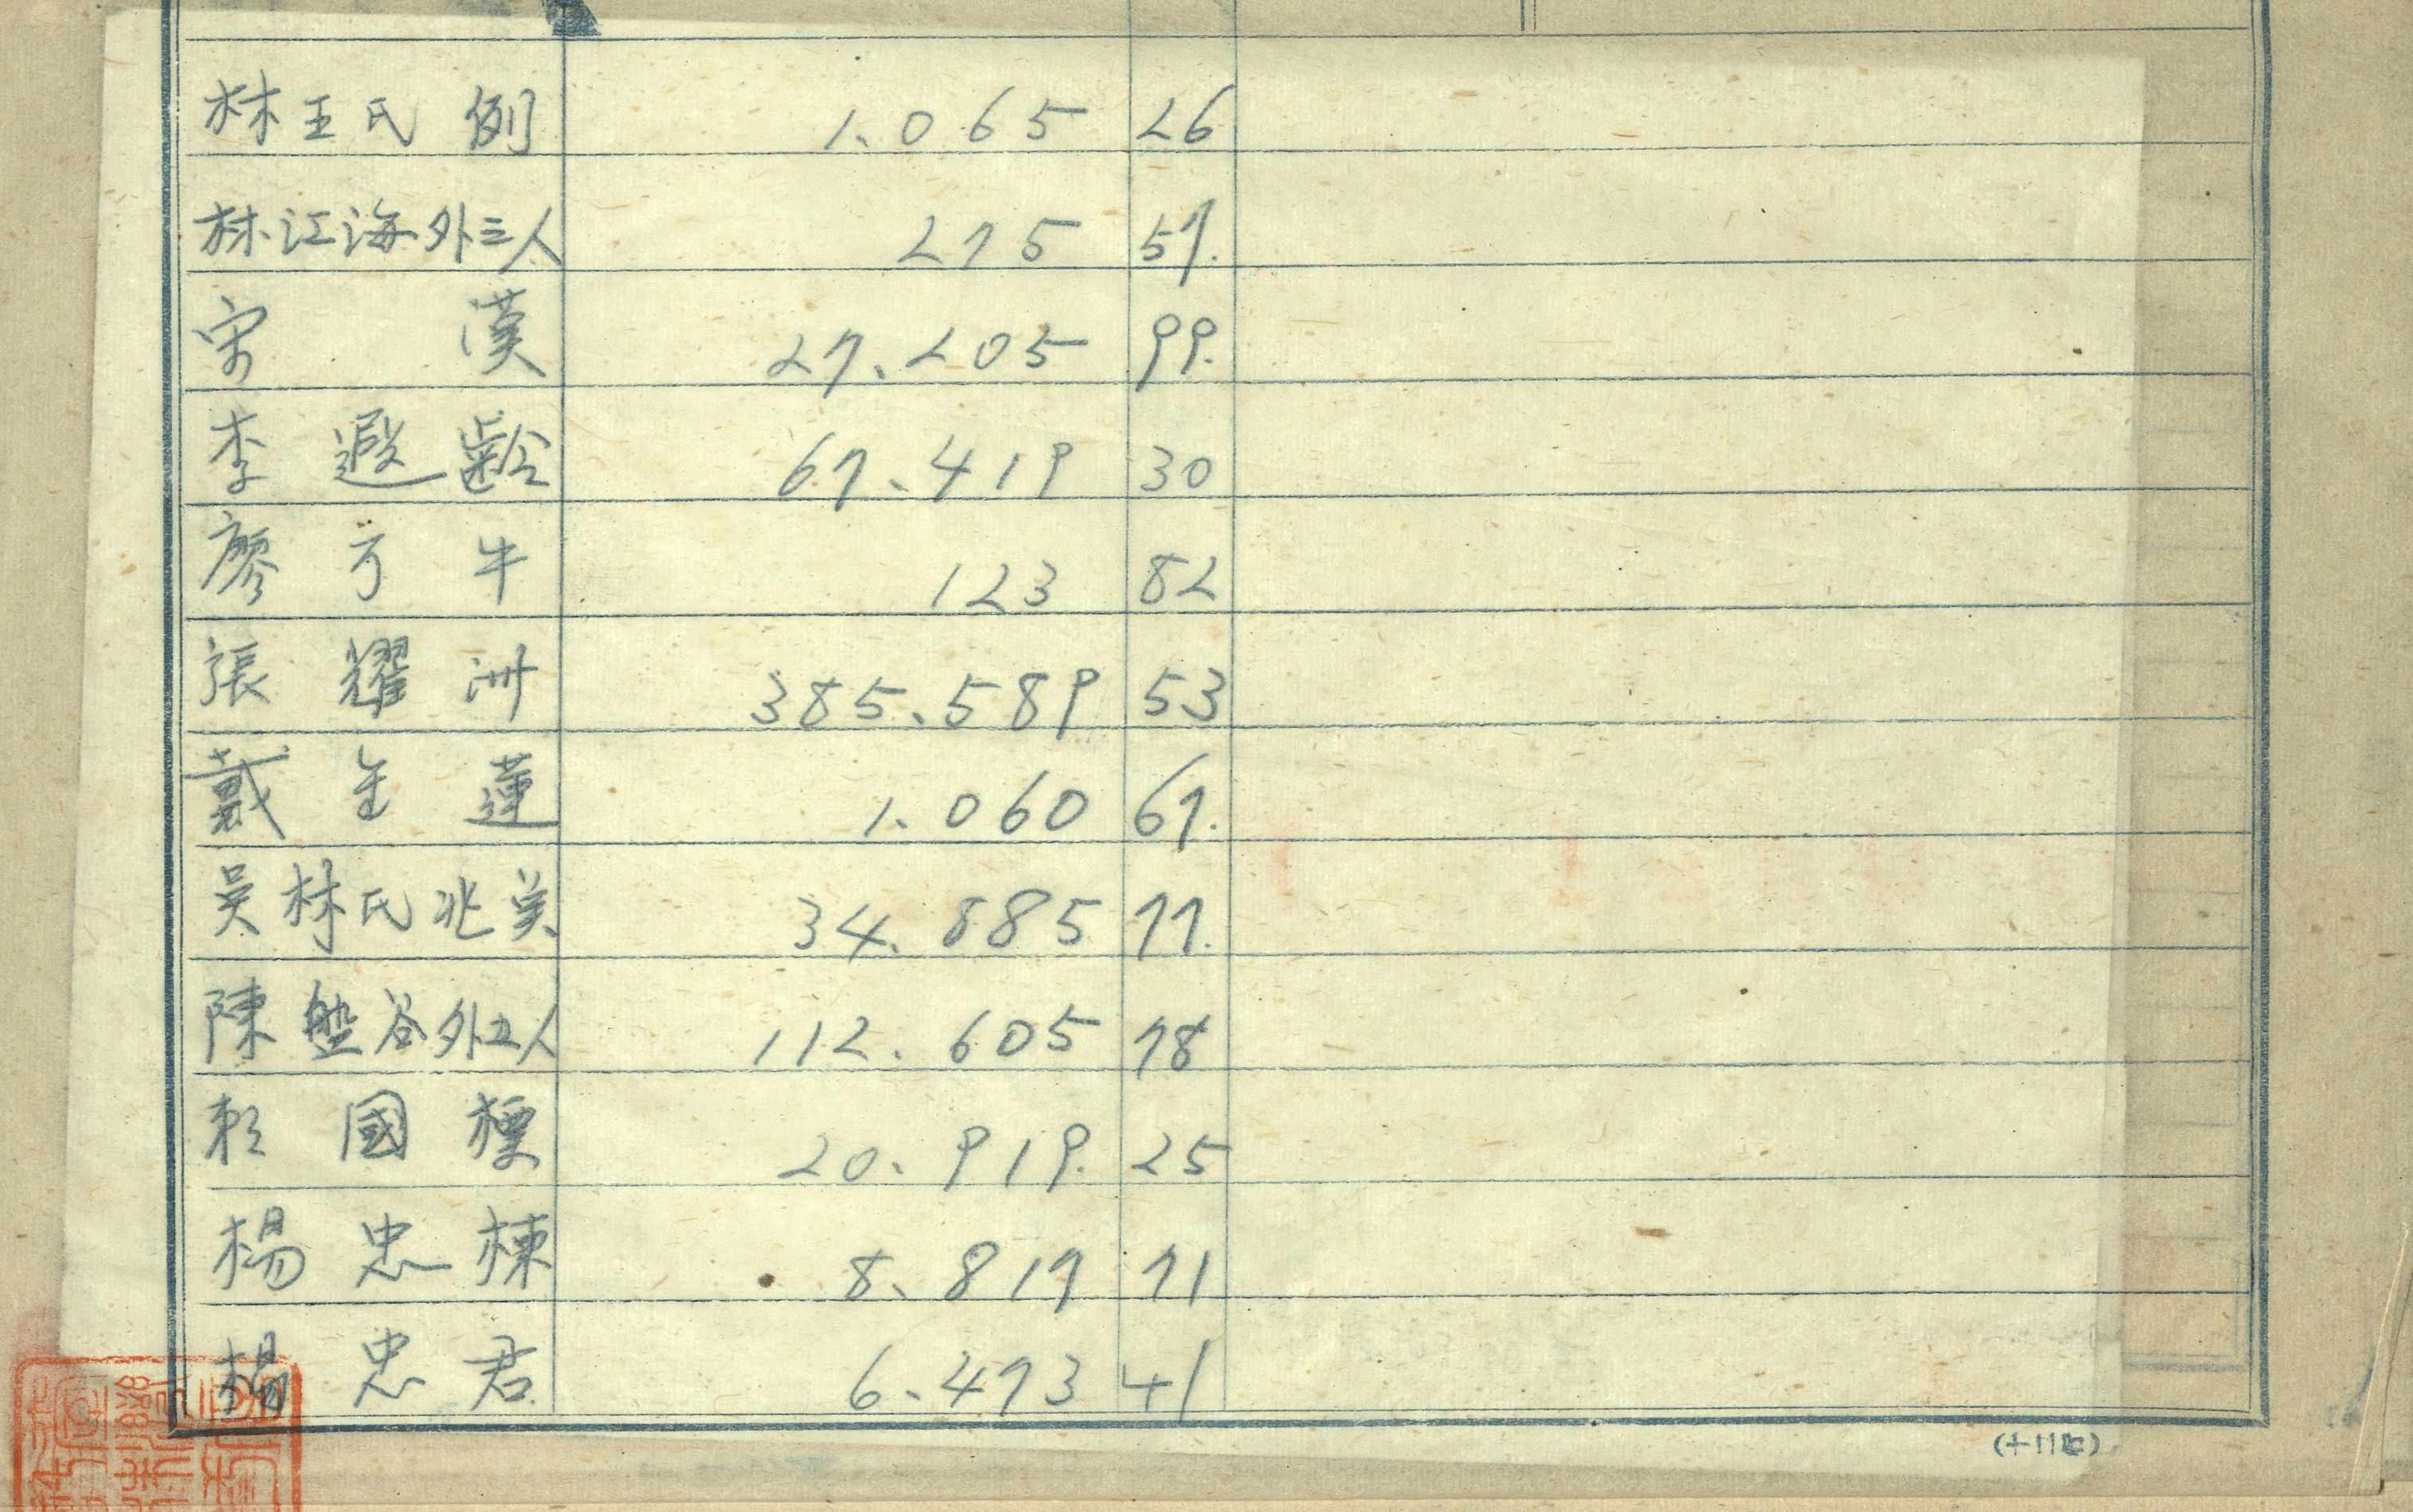 林王氏例 1.065 26
林江海外三人 275 57.
宋漢 27.205 99.
李遐齡 67.419 30
廖万牛 123 82
張耀洲 385.589 53
戴金蓮 1.060 67.
吳林氏兆美 34.885 77.
陳盤谷外五人 112.605 78
賴國標 20.919. 25
楊忠棟 8.817 71
楊忠君 6.473 41